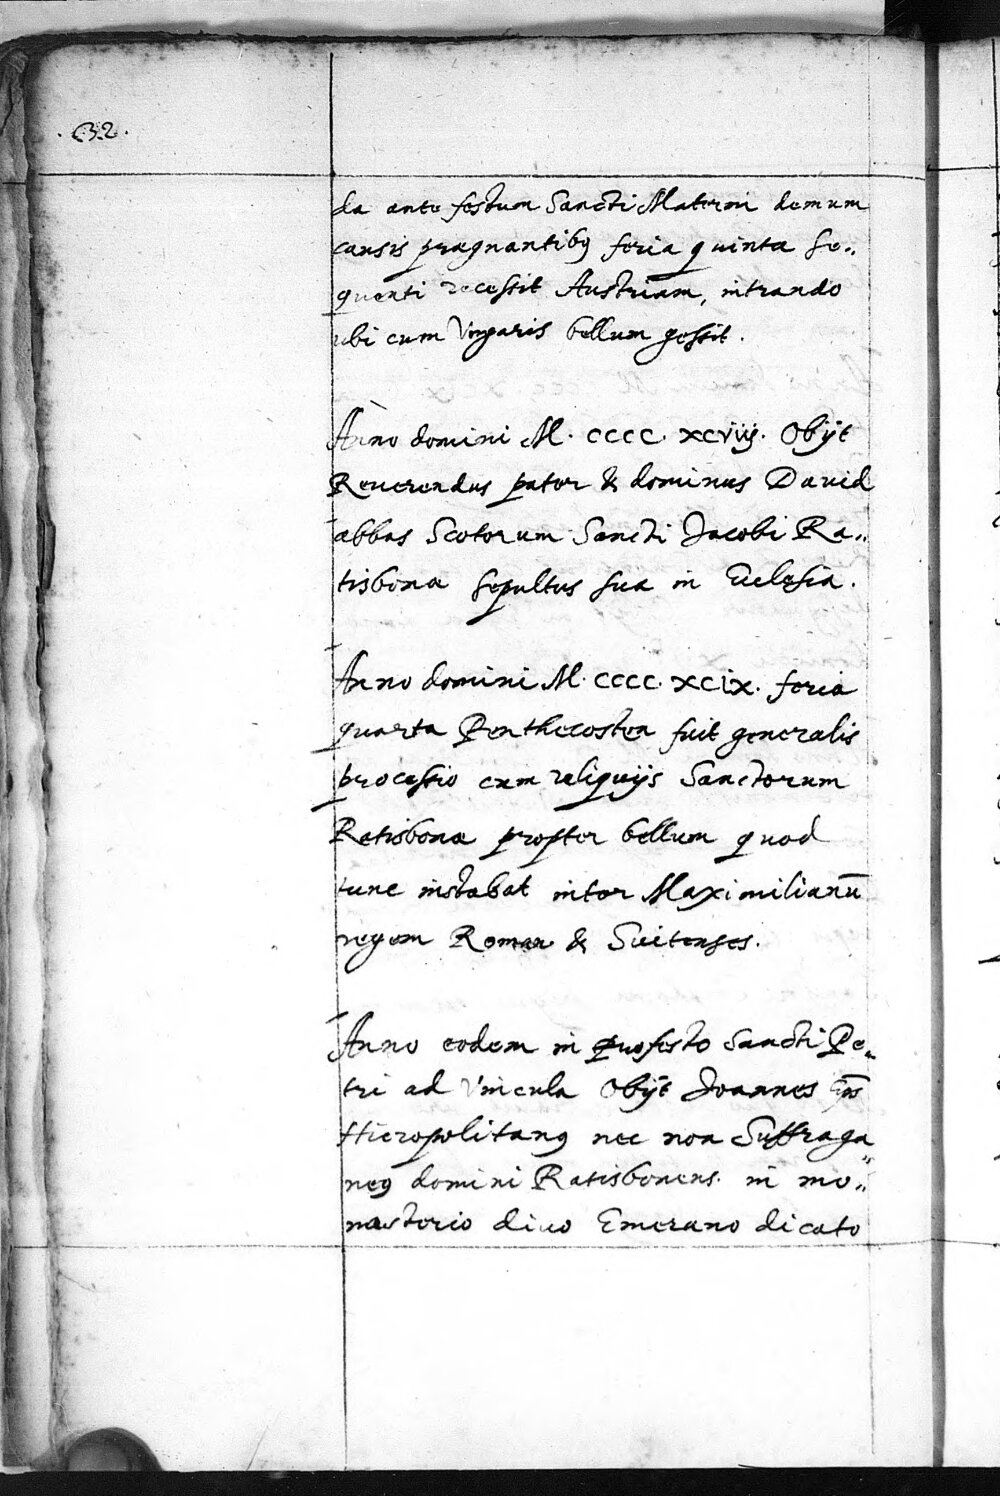 .32.
da ante festum Sancti Materni demum
causis prægnantibꝯ feria quinta se„
quenti recessit Austriam, intrando
ubi cum Vngaris bellum gessit.
Anno domini M. CCCC. XCViij. Obijt
Reuerendus pater & dominus Dauid
abbas Scotorum Sancti Jacobi Ra„
tisbonæ sepultus sua in Eclesia.
Anno domini M. CCCC. XCIX. feria
quarta Penthecostea fuit generalis
processio cum reliquijs Sanctorum
Ratisbonæ propter bellum quod
tunc instabat inter Maximilianū
regem Roman & Suitenses.
Anno eodem in profesto Sancti Pe„
tri ad Vincula Obijt Joannes Ep̄s
Hieropolitanꝯ nec non Suffraga„
neꝯ domini Ratisbonens. in mo„
nasterio diuo Emerano dicato